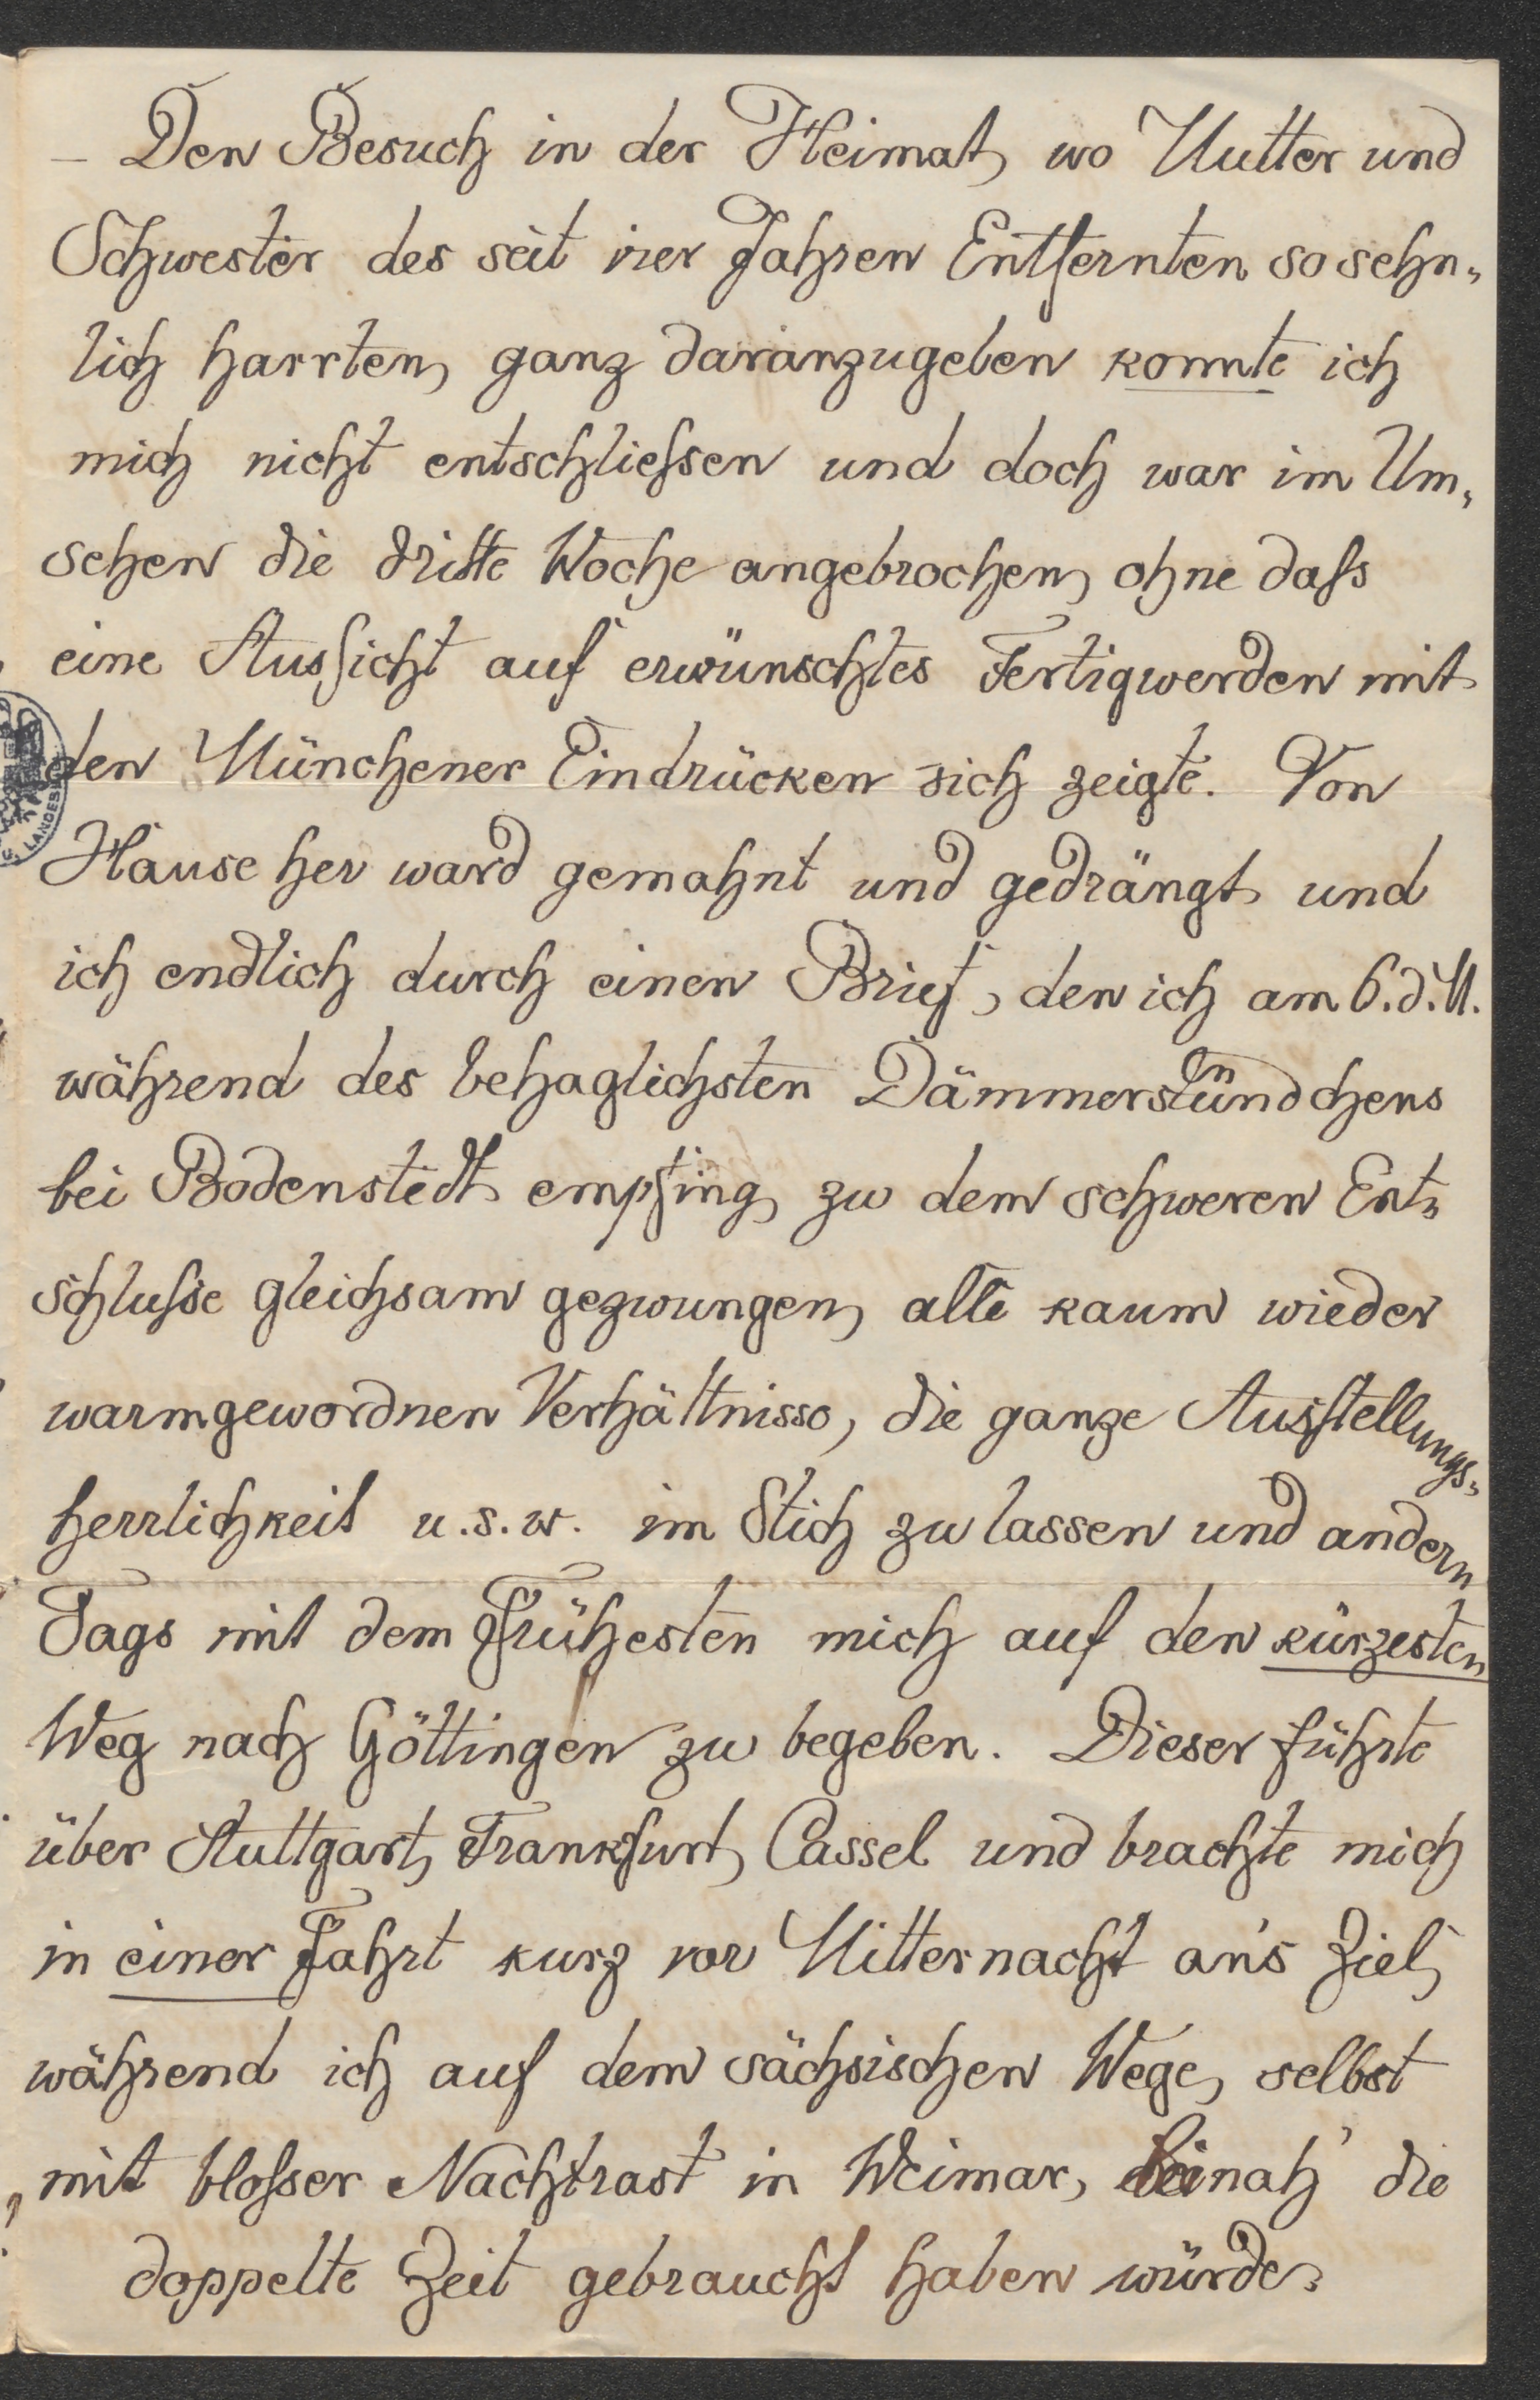 – Den Besuch in der Heimat, wo Mutter und
Schwester des seit vier Jahren Entfernten so sehn-
lich harrten, ganz daranzugeben konnte ich
mich nicht entschließen und doch war im Um-
sehen die dritte Woche angebrochen, ohne daß
eine Aussicht auf erwünschtes Fertigwerden mit
den Münchener Eindrücken sich zeigte. Von
Hause her ward gemahnt und gedrängt, und
ich endlich durch einen Brief, den ich am 6. d. M.
während des behaglichsten Dämmerstündchens
bei Bodenstedt empfing, zu dem schweren Ent-
schluße gleichsam gezwungen, alle kaum wieder
warmgewordnen Verhältnisse, die ganze Ausstellungs-
herrlichkeit u.s.w. im Stich zu lassen und andern
Tags mit dem Frühesten mich auf den kürzesten
Weg nach Göttingen zu begeben. Dieser führte
über Stuttgart, Frankfurt, Cassel und brachte mich
in einer Fahrt kurz vor Mitternacht an's Ziel,
während ich auf dem sächsischen Wege, selbst
mit bloßer Nachtrast in Weimar, beinah' die
doppelte Zeit gebraucht haben würde.
LANDES